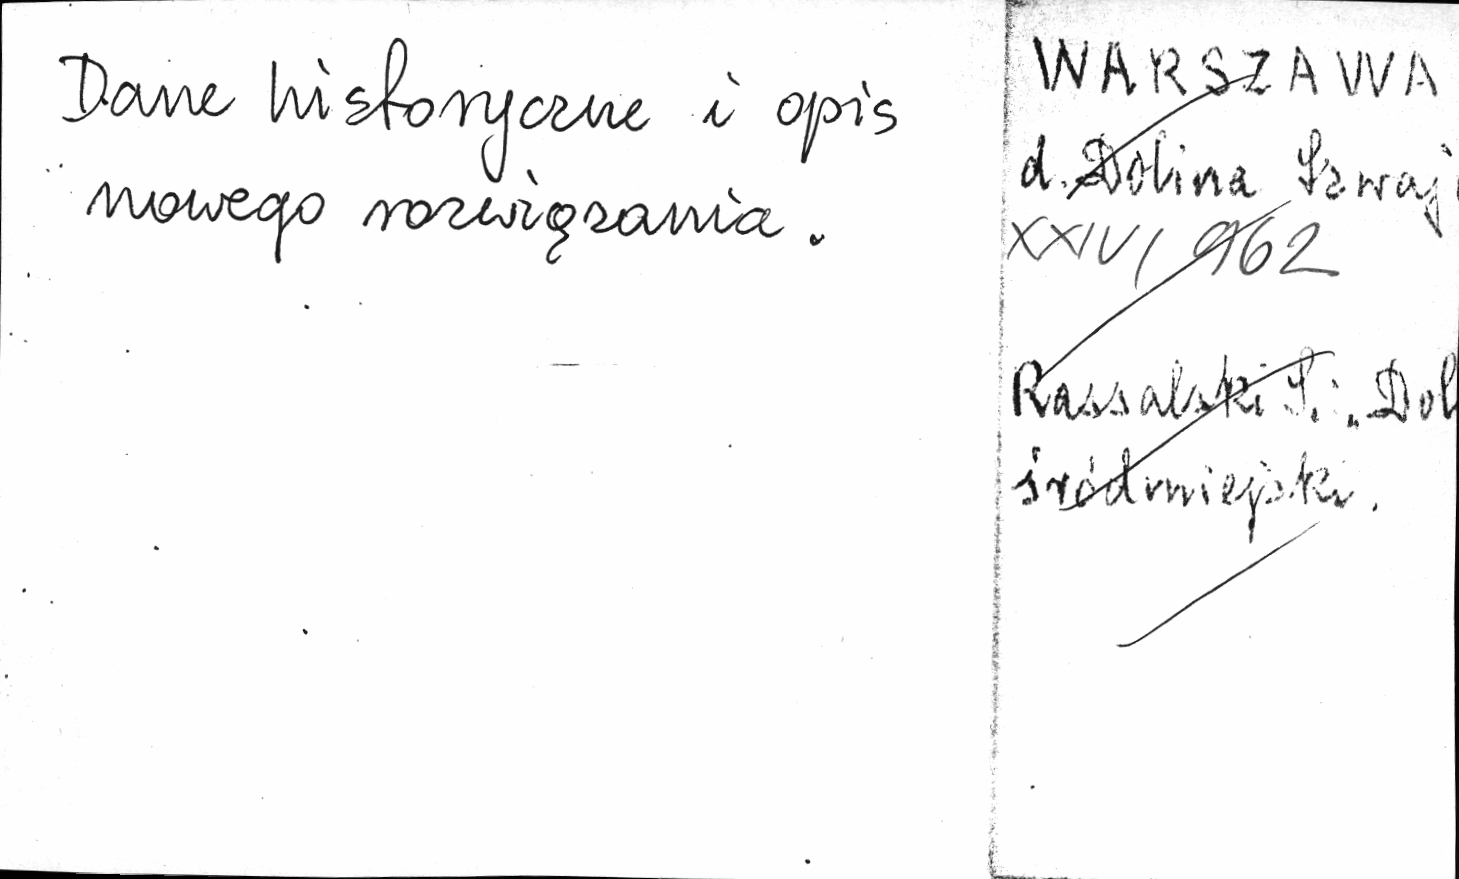 Dane historyczne i opis
nowego rozwiązania.
WARSZAWA
d. Dolina Szwaj
XXIV, 962
Rassalski S.: „Dol
śródmiejski.